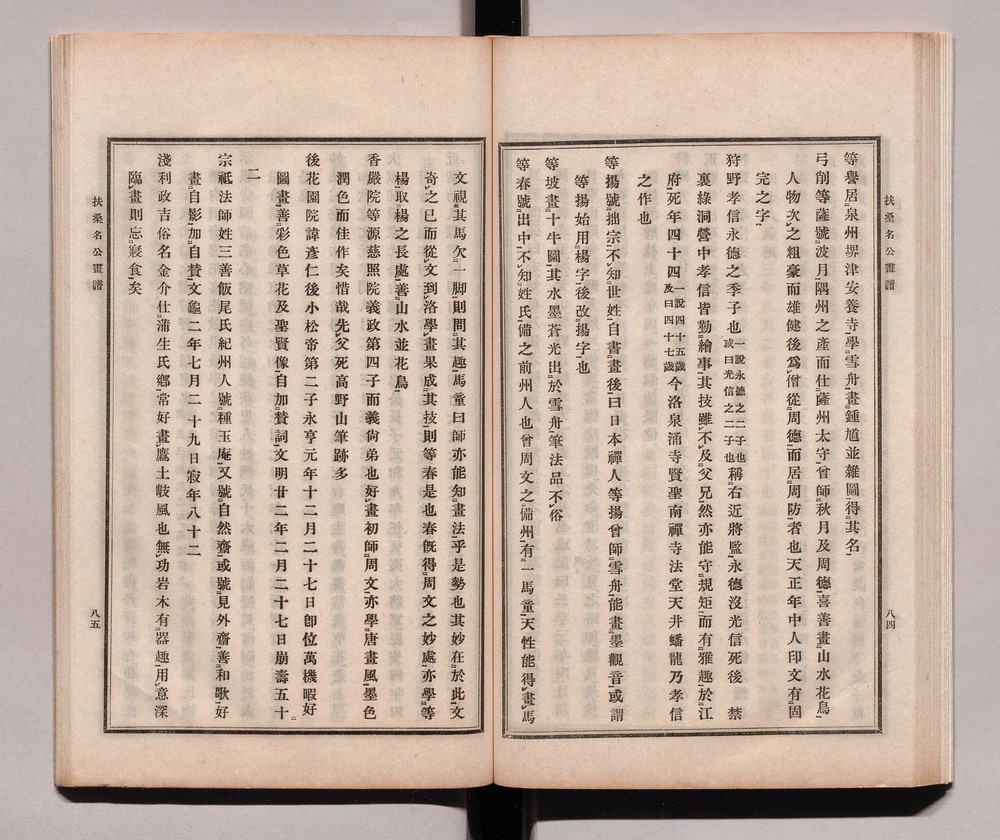 扶桑名公畫譜
八四
等譽居泉州堺津安養寺學雪舟畫鍾馗並雜圖得其名
弓削等薩號波月隅州之產而仕薩州太守曾師秋月及周德喜善畫山水花鳥
人物次之粗豪而雄健後爲僧從周德而居周防者也天正年中人印文有固
完之字
狩野孝信永德之季子也一說永德之二子也或曰光信之二子也稱右近將監永德沒光信死後禁
裏綠洞營中孝信皆勤繪事其技雖不及父兄然亦能守規矩而有雅趣於江
府死年四十四一說四十五歲及曰四十七歲今洛泉涌寺賢聖南禪寺法堂天井蟠龍乃孝信
之作也
等揚號拙宗不知世姓自書畫後曰日本禪人等揚曾師雪舟能畫墨觀音或謂
等揚始用楊字後改揚字也
等坡畫十牛圖其水墨蒼光出於雪舟筆法品不俗
等春號出中不知姓氏備之前州人也曾周文之備州有一馬童天性能得畫馬
文視其馬欠一脚則問其趣馬童曰師亦能知畫法乎是勢也其妙在於此文
奇之已而從文到洛學畫果成其技則等春是也春既得周文之妙處亦學等
楊取楊之長處善山水並花鳥
香嚴院等源慈照院義政第四子而義尙弟也好畫初師周文亦學唐畫風墨色
潤色而佳作矣惜哉先父死高野山筆跡多
後花園院諱彥仁後小松帝第二子永亨元年十二月二十七日卽位萬機暇好
圖畫善彩色草花及聖賢像自加贊詞文明廿二年二月二十七日崩壽五十
二
宗祗法師姓三善飯尾氏紀州人號種玉庵又號自然齋或號見外齋善和歌好
畫自影加自贊文龜二年七月二十九日寂年八十二
淺利政吉俗名金介仕蒲生氏鄕常好畫鷹土岐風也無功岩木有器趣用意深
臨畫則忘寢食矣
扶桑名公畫譜
八五